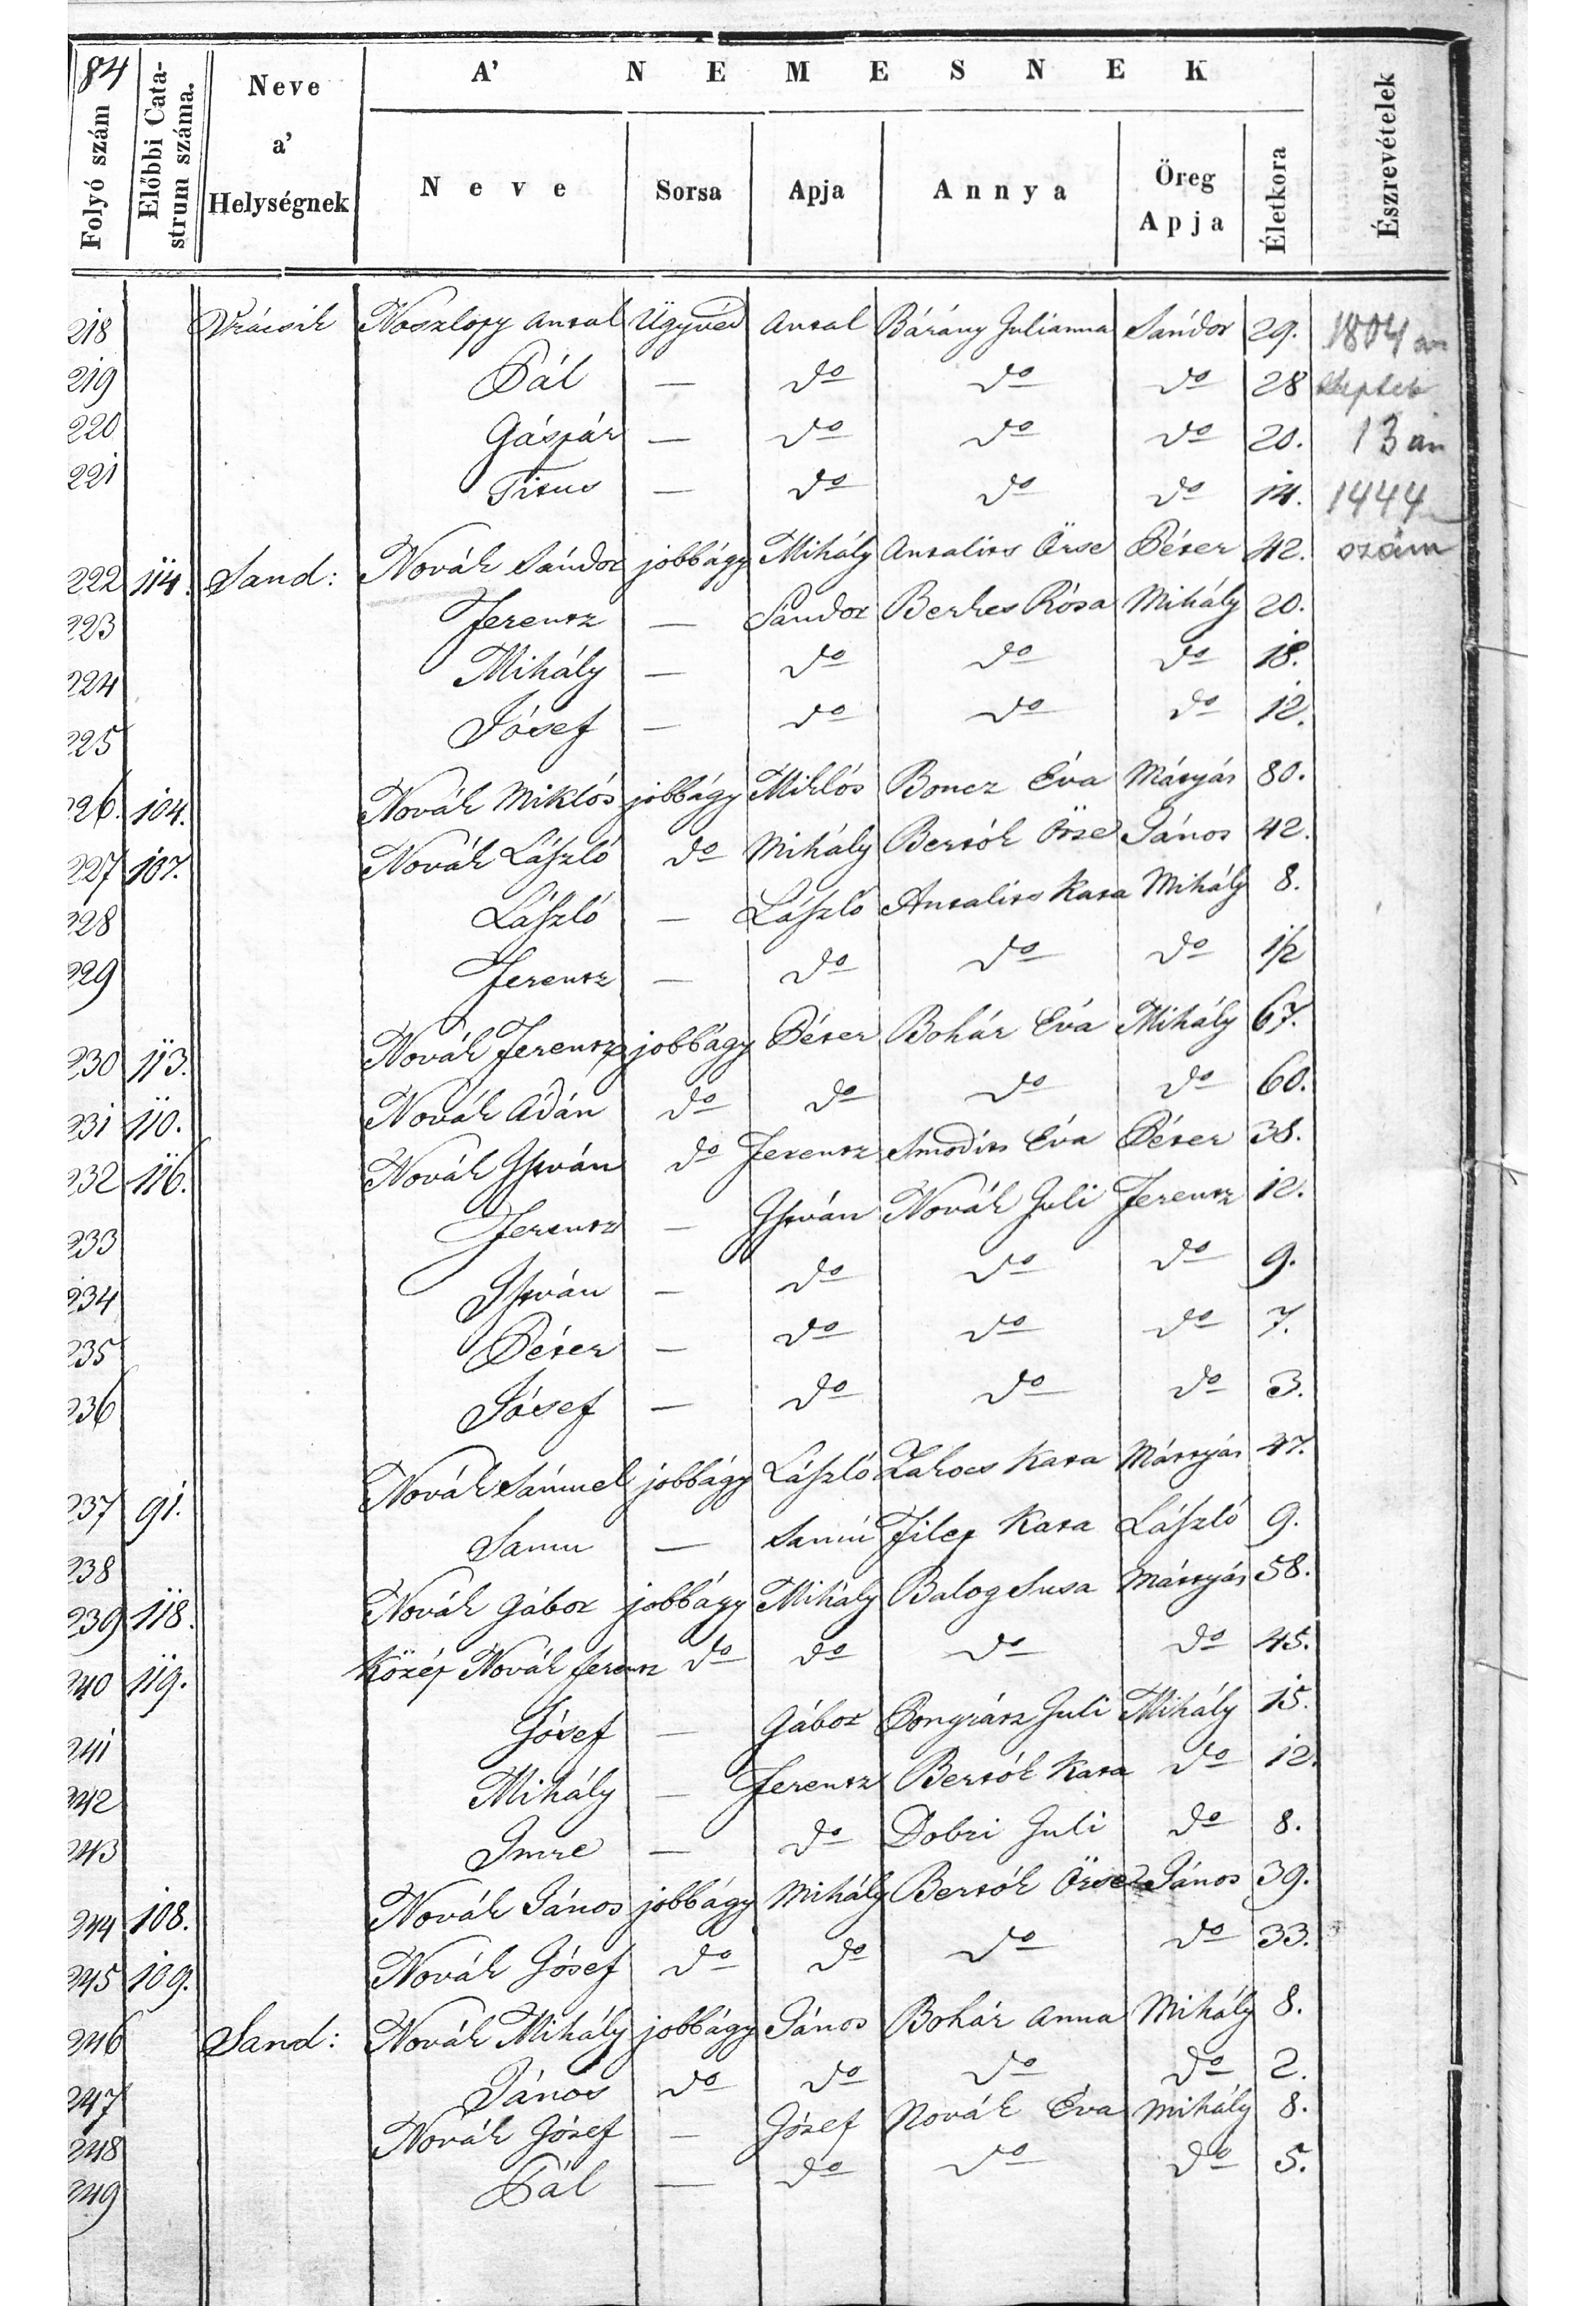 84
Folyó szám
Előbbi Cata-
strum száma.
Neve
a'
Helységnek
A' NEMESNEK
Neve
Sorsa
Apja
Annya
Öreg
Apja
Életkora
Észrevételek
218 Vrácsik Noszlopy Antal Ügyvéd Antal Bárány Julianna Sándor 29. 1804 an
219 Pál — do do do 28 Septeb
220 Gáspár — do do do 20. 13 án
221 Titus — do do do 14. 1444
222 114. Sand: Novák Sándor jobbágy Mihály Antalits Örse Péter 42. szám
223 Ferentz — Sándor Berkes Rósa Mihály 20.
224 Mihály — do do do 18.
225 Jósef — do do do 12.
226. 104. Novák Miklós jobbágy Miklós Boncz Éva Mátyás 80.
227 107. Novák László do Mihály Bertók Örse János 42.
228 László — László Antalits Kata Mihály 8.
229 Ferentz — do do do 1/2
230 113. Novák Ferentz jobbágy Péter Bohár Éva Mihály 67.
231 110. Novák Ádán do do do do 60.
232 116. Novák István do Ferentz Smodits Éva Péter 38.
233 Ferentz — István Novák Juli Ferentz 12.
234 István — do do do 9.
235 Péter — do do do 7.
236 Jósef — do do do 3.
237 91. Novák Sámuel jobbágy László Zakocs Kata Mátyás 47.
238 Samu — Samu Filep Kata László 9.
239 118. Novák Gábor jobbágy Mihály Balog Susa Mátyás 58.
240 119. Közép Novák ferentz do do do do 45.
241 Jósef — Gábor Pongrátz Juli Mihály 15.
242 Mihály — Ferentz Bertók Kata do 12.
243 Imre — do Dobri Juli do 8.
244 108. Novák János jobbágy Mihály Bertók Örse János 39.
245 109. Novák Jósef do do do do 33.
246 Sand: Novák Mihály jobbágy János Bohár Anna Mihály 8.
247 János do do do do 2.
248 Novák Jósef — Jósef Novák Éva Mihály 8.
249 Pál — do do do 5.